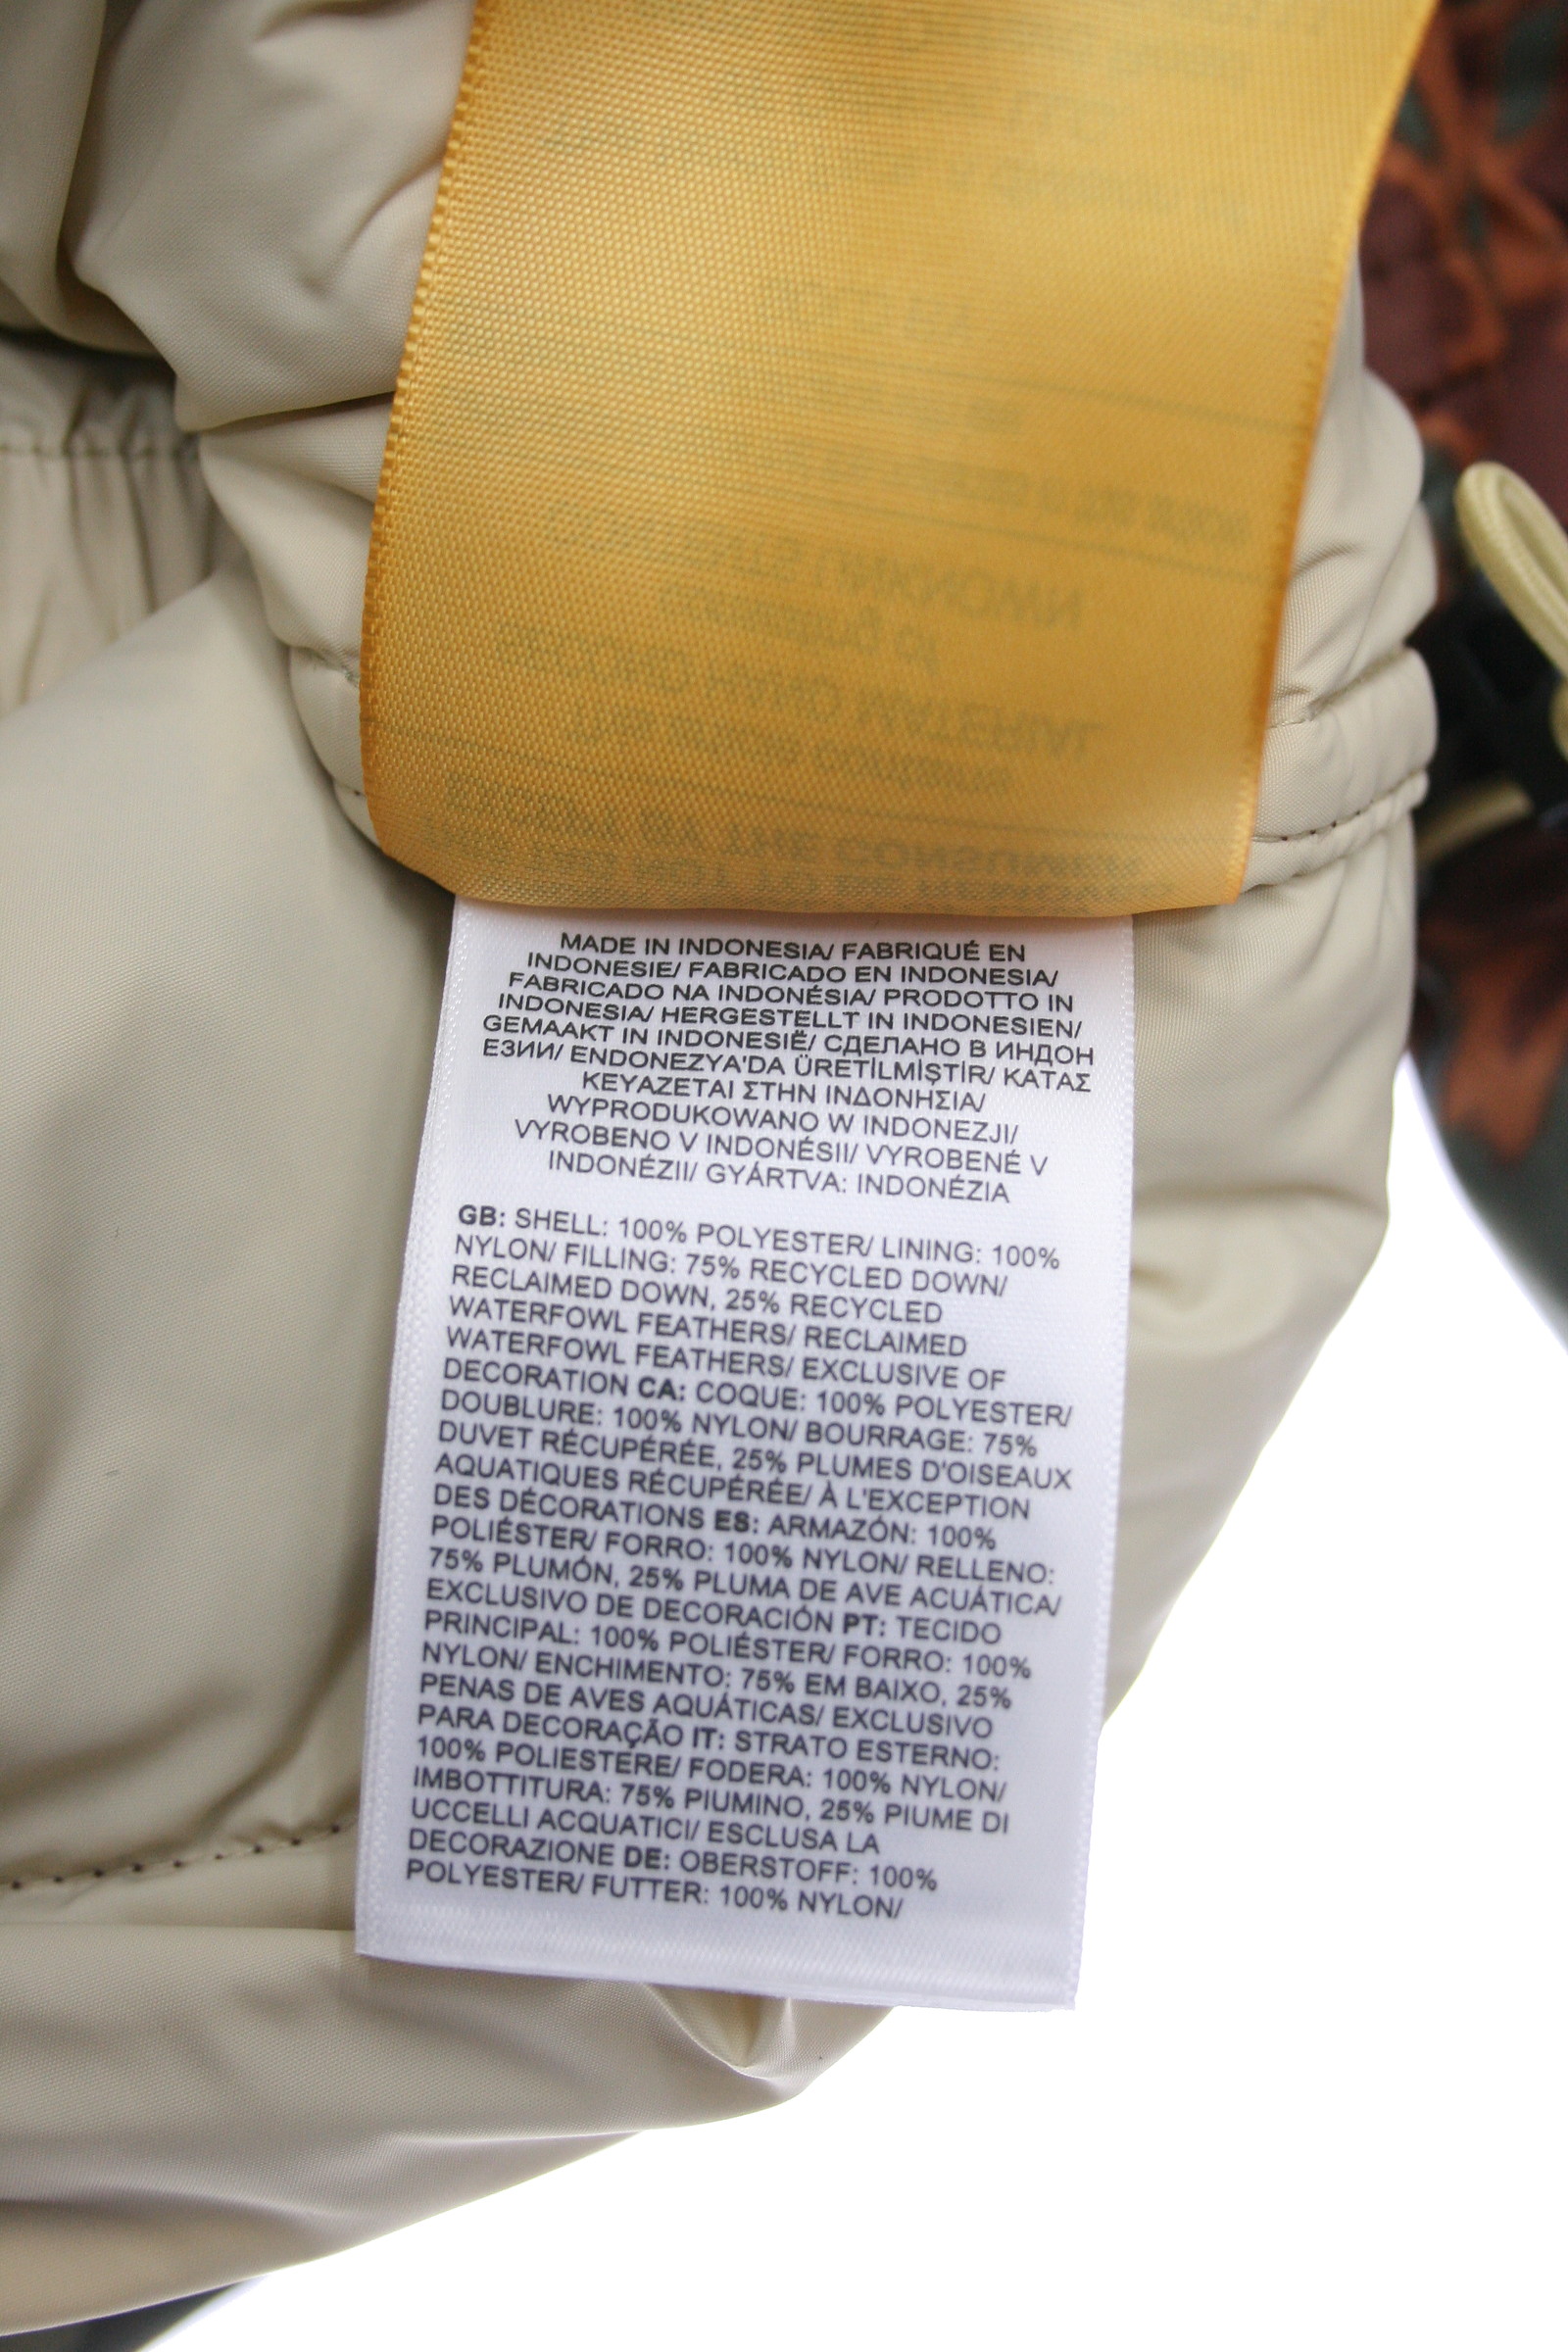 MADE IN INDONESIA/ FABRIQUÉ EN
INDONESIE/ FABRICADO EN INDONESIA/
FABRICADO NA INDONÉSIA/ PRODOTTO IN
INDONESIA/ HERGESTELLT IN INDONESIEN/
GEMAAKT IN INDONESIË/ СДЕЛАНО В ИНДОН
ЕЗИИ/ ENDONEZYA'DA ÜRETİLMİŞTİR/ ΚΑΤΑΣ
ΚΕΥΑΖΕΤΑΙ ΣΤΗΝ ΙΝΔΟΝΗΣΙΑ/
WYPRODUKOWANO W INDONEZJI/
VYROBENO V INDONÉSII/ VYROBENÉ V
INDONÉZII/ GYÁRTVA: INDONÉZIA
GB: SHELL: 100% POLYESTER/ LINING: 100%
NYLON/ FILLING: 75% RECYCLED DOWN/
RECLAIMED DOWN, 25% RECYCLED
WATERFOWL FEATHERS/ RECLAIMED
WATERFOWL FEATHERS/ EXCLUSIVE OF
DECORATION CA: COQUE: 100% POLYESTER/
DOUBLURE: 100% NYLON/ BOURRAGE: 75%
DUVET RÉCUPÉRÉE, 25% PLUMES D'OISEAUX
AQUATIQUES RÉCUPÉRÉE/ À L'EXCEPTION
DES DÉCORATIONS ES: ARMAZÓN: 100%
POLIÉSTER/ FORRO: 100% NYLON/ RELLENO:
75% PLUMÓN, 25% PLUMA DE AVE ACUÁTICA/
EXCLUSIVO DE DECORACIÓN PT: TECIDO
PRINCIPAL: 100% POLIÉSTER/ FORRO: 100%
NYLON/ ENCHIMENTO: 75% EM BAIXO, 25%
PENAS DE AVES AQUÁTICAS/ EXCLUSIVO
PARA DECORAÇÃO IT: STRATO ESTERNO:
100% POLIESTERE/ FODERA: 100% NYLON/
IMBOTTITURA: 75% PIUMINO, 25% PIUME DI
UCCELLI ACQUATICI/ ESCLUSA LA
DECORAZIONE DE: OBERSTOFF: 100%
POLYESTER/ FUTTER: 100% NYLON/